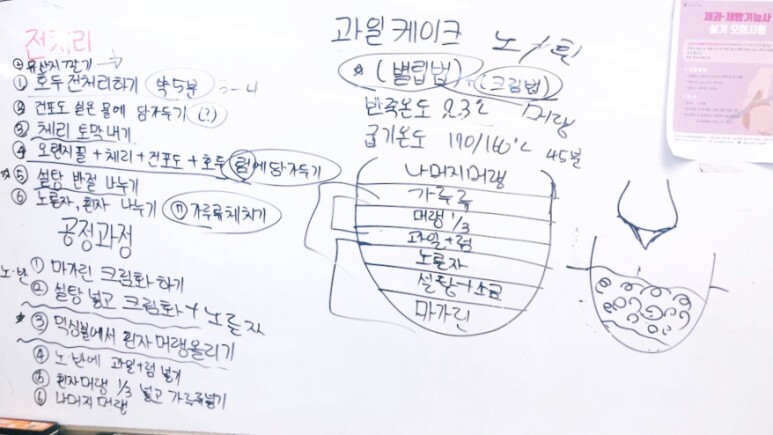 전처리
⓪ 유산지 깔기
① 호두 전처리하기 (약 5분)
② 건포도 쉬은 물에 담가두기 (?)
③ 체리 토막내기
④ 오렌지필 + 체리 + 건포도 + 호두 럼에 담가두기
☆⑤ 설탕 반절 나누기
⑥ 노른자, 흰자 나누기
⑦ 가루류 체치기
공정과정
노·반 ① 마가린 크림화 하기
② 설탕 넣고 크림화 + 노른자
* ③ 믹싱볼에서 흰자 머랭올리기
④ 노·반에 과일+럼 넣기
⑤ 흰자머랭 1/3 넣고 가루류넣기
⑥ 나머지 머랭
과일케이크
노/흰
☆ (별립법) (크림법)
반죽온도 23℃
머랭
굽기온도 170/160℃ 45분
나머지머랭
가루류
머랭 1/3
과일+럼
노른자
설탕+소금
마가린
제과·제빵기능사
실기 모의시험